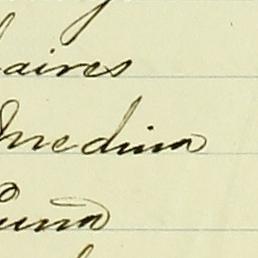 aires
Medina
Luna